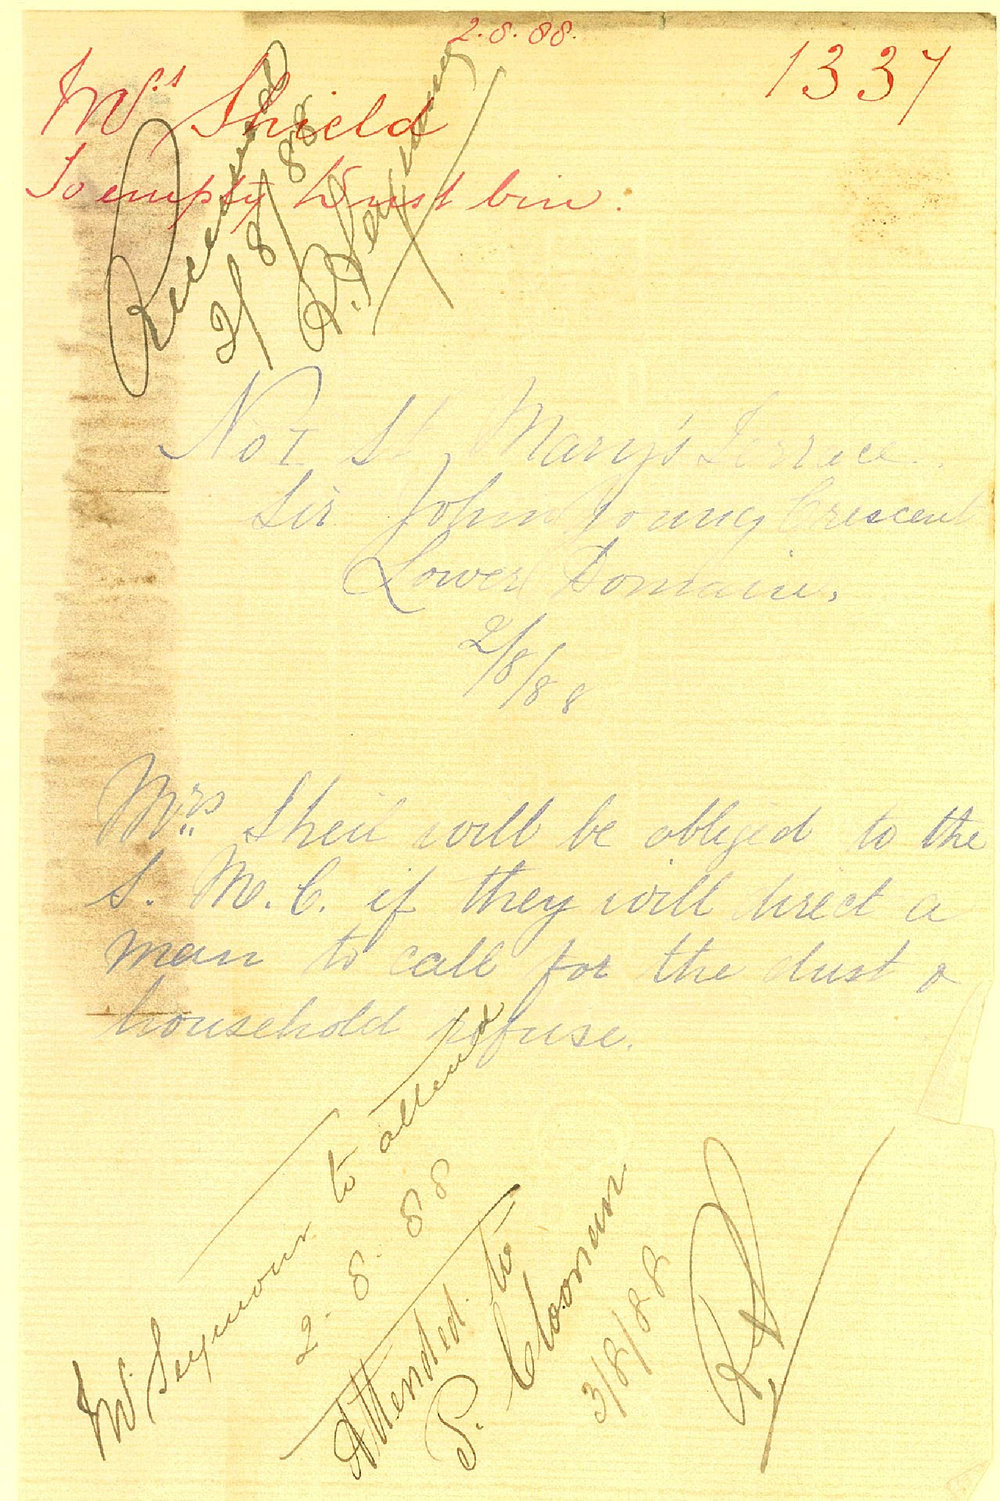 2.8.88.
1337
Mrs Shield
To empty Dust bin.
Received
2/8/88
R. Seymour
No 1 St Mary's Terrace.
Sir John Young Crescent
Lower Domain.
2/8/88
Mrs. Sheil will be obliged to the
S. M. C. if they will direct a
man to call for the dust &
household refuse.
Mr Seymour to attend
2.8.88
Attended to
P. Cloonan
3/8/88
RS